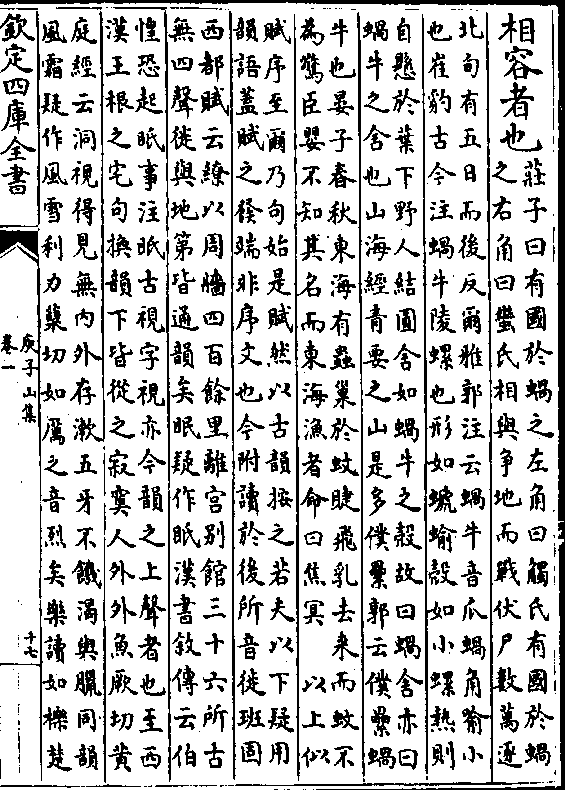 相容者也
莊子曰有國於蝸之左角曰觸氏有國於蝸
之右角曰蠻氏相與爭地而戰伏尸數萬逐
北旬有五日而後反爾雅郭注云蝸牛音瓜蝸角喻小
也崔豹古今注蝸牛陵螺也形如螔蝓殼如小螺熱則
自懸於葉下野人結圓舍如蝸牛之殼故曰蝸舍亦曰
蝸牛之舍也山海經青要之山是多僕纍郭云僕纍蝸
牛也晏子春秋東海有蟲巢於蚊睫飛乳去来而蚊不
為驚臣嬰不知其名而東海漁者命曰焦冥 以上似
賦序至爾乃句始是賦然以古韻按之若夫以下疑用
韻語蓋賦之發端非序文也今附讀於後所音徙班固
西都賦云繚以周牆四百餘里離宮别館三十六所古
無四聲徙與地第皆通韻矣眠疑作眡漢書敘傳云伯
惶恐起眡事注眡古視字視亦今韻之上聲者也至西
漢王根之宅句換韻下皆從之寂寞人外外魚厥切黄
庭經云洞視得見無内外存漱五牙不饑渴與臘同韻
風霜疑作風雪利力蘖切如厲之音烈矣樂讀如櫟楚
欽定四庫全書
庾子山集
卷一
十七